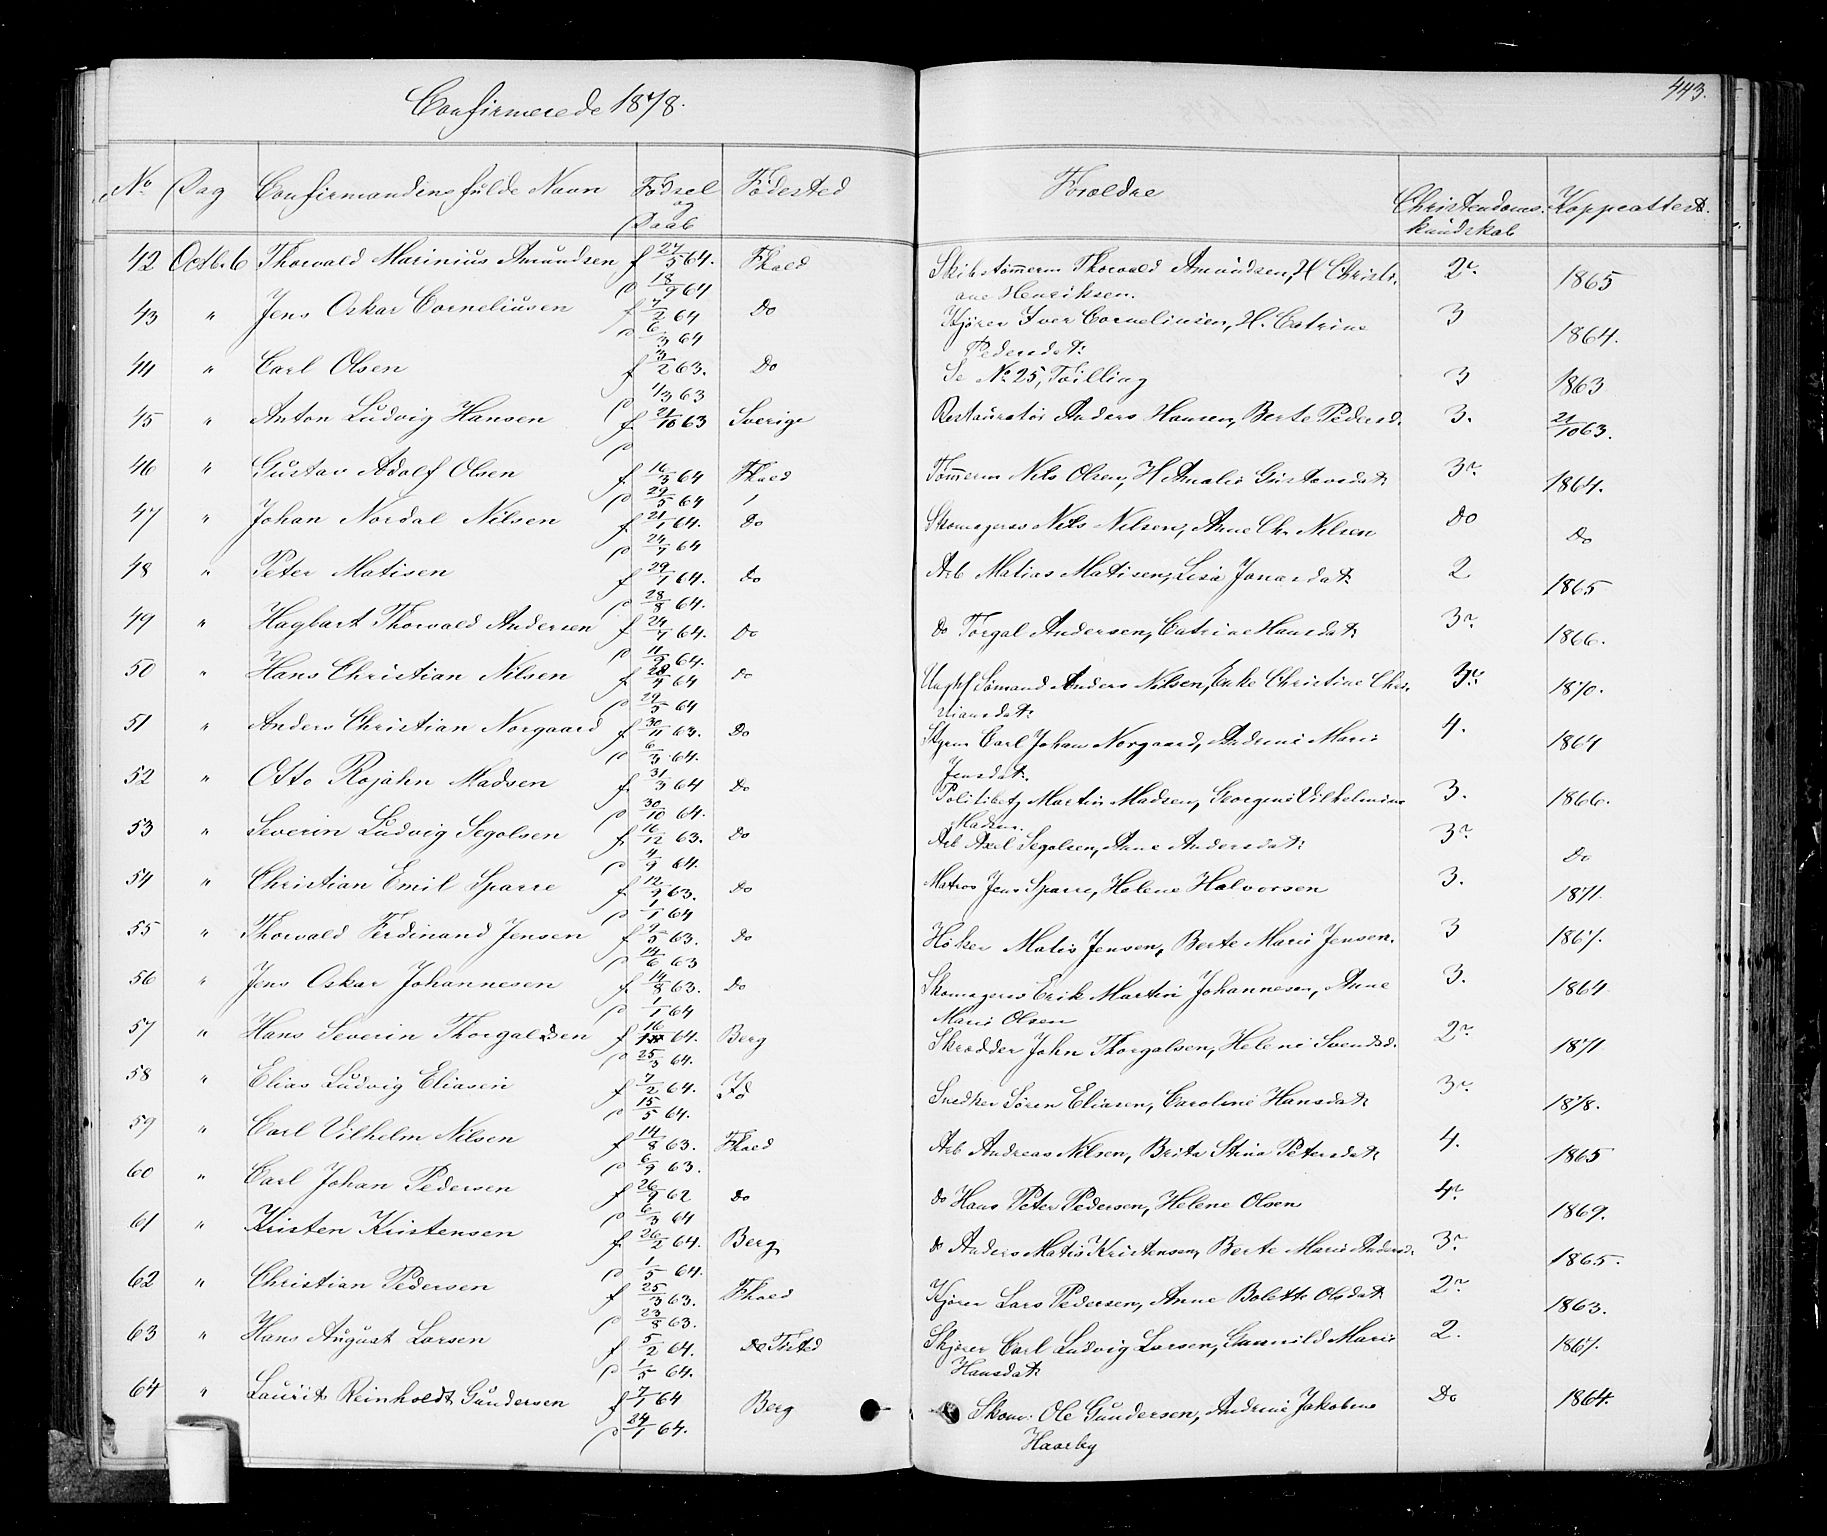 443.
Confirmerede 1878.
No Dag Confirmandens fulde Navn Fødsel og Daab Fødested Forældre Christendoms kundskab Koppeattest.
42 Octb. 6 Thorvald Marinius Amundsen f 27/5 64. Fhald Skibstømmerm Thorvald Amundsen, H Christi- 2r 1865
D 18/9 64 ane Henriksen.
43 " Jens Oskar Corneliusen f 7/2 64 Do Kjører Iver Corneliusen, H. Catrine 3 1864.
D 6/3 64 Pedersdat.
44 " Carl Olsen f 3/2 63. Do Se No 25, Tvilling 3 1863
D 1/3 63
45 " Anton Ludvig Hansen f 21/10 63 Sverige Restauratør Anders Hansen, Berte Pedersd. 3. 21/10 63.
D
46 " Gustav Adolf Olsen f 16/3 64 Fhald Tømmerm Nils Olsen, H Amalie Gustavsdat 3r 1864.
D 29/5 64
47 " Johan Nordal Nilsen f 21/1 64. Do Skomagersv Nils Nilsen, Anne Chr Nilsen Do Do
D 24/7 64
48 " Peter Matisen f 29/1 64. do Arb Matias Matisen, Lisa Jonasdat 2 1865
D 28/8 64.
49 " Hagbart Thorvald Andersen f 24/7 64. Do do Torgal Andersen, Catrine Hansdat 3r 1866.
D 11/9 64.
50 " Hans Christian Nilsen f 28/4 64 do Ughf Sømand Anders Nilsen, Enke Christine Chri- 3r 1870.
D 29/5 64 stiansdat
51 " Anders Christian Norgaard f 30/11 63. Do Styrm Carl Johan Norgaard, Andrine Marie 4. 1864
D 6/3 64. Jensdat.
52 " Otto Rojahn Madsen f 31/3 64 Do Politibetj Martin Madsen, Georgine Vilhelmine 3. 1866.
D 30/10 64. Madsen.
53 " Severin Ludvig Segolsen f 16/12 63. Do Arb Axel Segolsen, Anne Andersdat 3r Do
D 4/9 64.
54 " Christian Emil Sparre f 12/9 63. Do Matros Jens Sparre, Helene Halvorsen 3. 1871.
D 1/1 64
55 " Thorvald Ferdinand Jensen f 9/5 63. Do Høker Matis Jensen, Berte Marie Jensen. 3 1867.
D 14/6 63
56 " Jens Oskar Johannesen f 14/8 63. Do Skomagersv Erik Martin Johannesen, Anne 3. 1864
D 1/1 64 Marie Olsen
57 " Hans Severin Thorgaldsen f 16/ 64. Berg Skrædder John Thorgalsen, Helene Svendsd. 2r 1871
D 25/5 64.
58 " Elias Ludvig Eliasen f 7/2 64. Id Snedker Søren Eliasen, Caroline Hansdat 3r 1878.
D 15/5 64.
59 " Carl Vilhelm Nilsen f 14/8 63. Fhald Arb Andreas Nilsen, Brita Stina Petersdat 4. 1865
D 6/9 63.
60 " Carl Johan Pedersen f 26/9 62 Do do Hans Peter Pedersen, Helene Olsen 4r 1869.
D 6/3 64
61 " Kristen Kristensen f 26/2 64. Berg do Anders Matis Kristensen, Berte Marie Andersd. 3r 1865.
D 1/5 64.
62 " Christian Pedersen f 25/3 63. Fhald Kjører Lars Pedersen, Anne Bolette Olsdat 2r 1863.
D 23/8 63.
63 " Hans August Larsen f 5/2 64. Do Tisted Skjører Carl Ludvig Larsen, Gunnild Marie 2. 1867.
D 1/5 64. Hansdat
64 " Laurits Reinholdt Gundersen f 7/1 64 Berg Skom: Ole Gundersen, Andrine Jakobine Do 1864.
D 24/1 64. Haarby